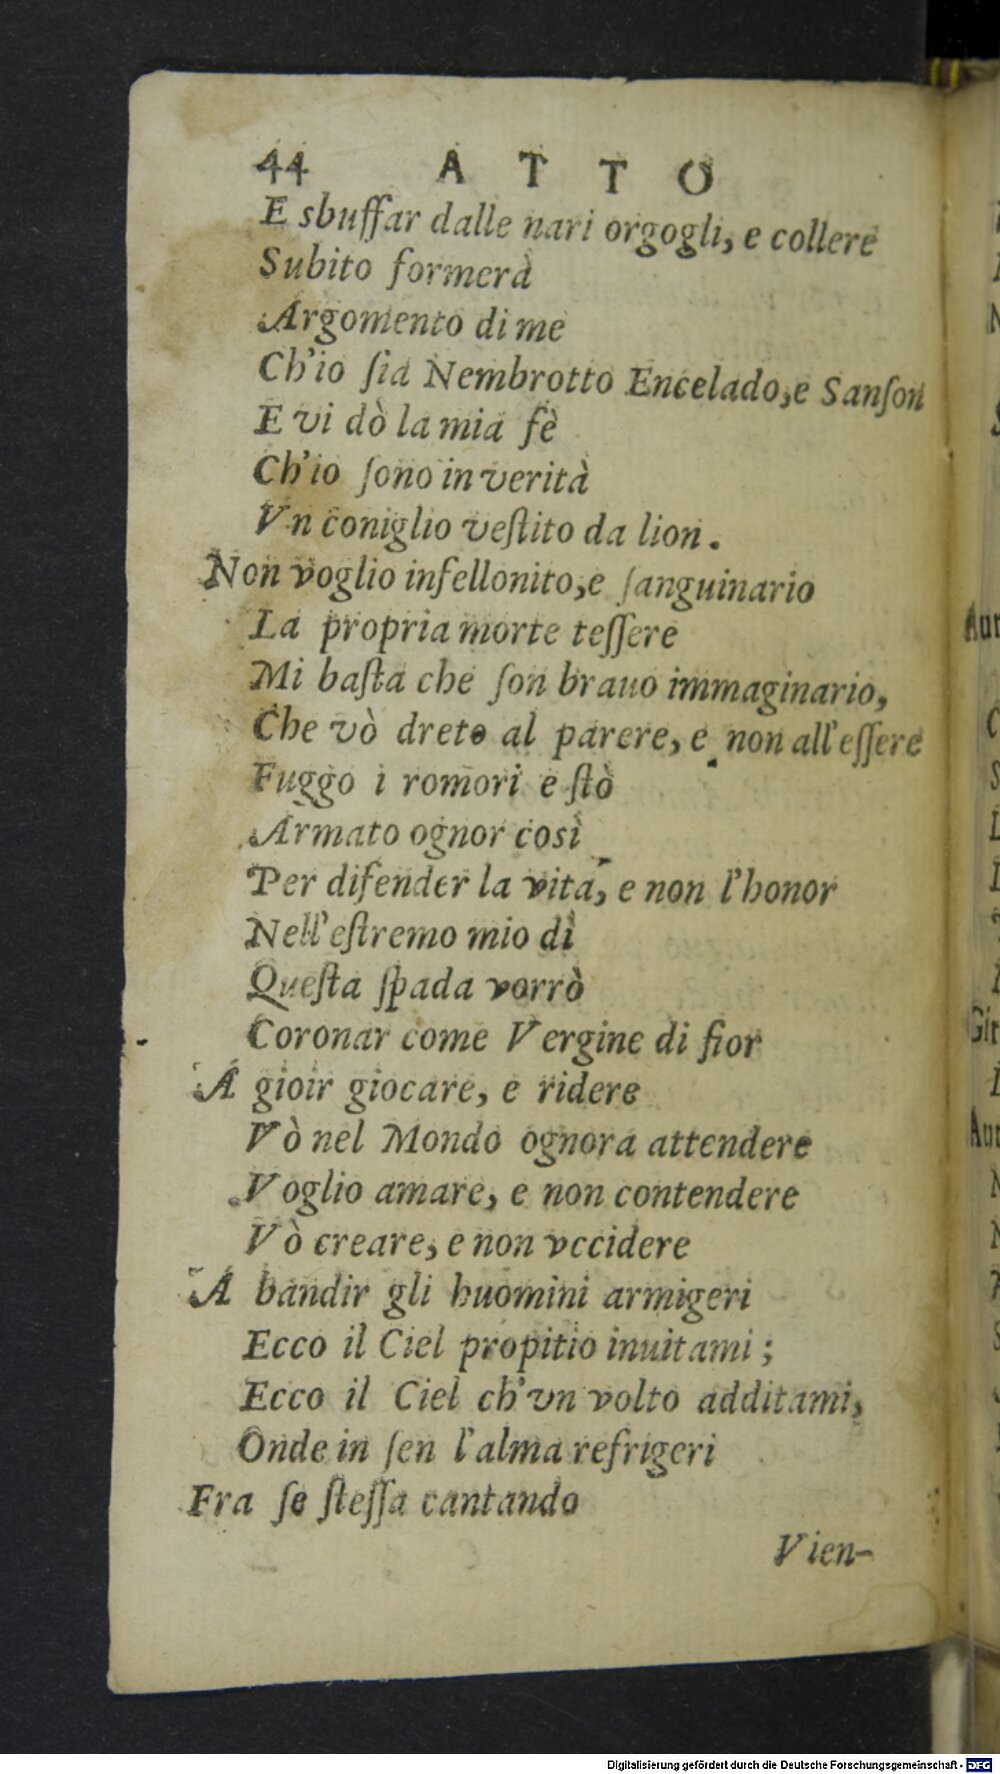 44 ATTO
E sbuffar dalle nari orgogli, e collere
Subito formerà
Argomento di me
Ch'io ſia Nembrotto Encelado, e Sanſon
E vi dò la mia fè
Ch'io ſono in verità
Vn coniglio veſtito da lion.
Non voglio infellonito, e ſanguinario
La propria morte teſſere
Mi baſta che ſon brauo immaginario,
Che vò dreto al parere, e non all'eſſere
Fuggo i romori e ſtò
Armato ognor così
Per difender la vita, e non l'honor
Nell'eſtremo mio dì
Queſta ſpada vorrò
Coronar come Vergine di fior
A gioir giocare, e ridere
Vò nel Mondo ognora attendere
Voglio amare, e non contendere
Vò creare, e non vccidere
A bandir gli huomini armigeri
Ecco il Ciel propitio inuitami;
Ecco il Ciel ch'vn volto additami,
Onde in ſen l'alma refrigeri
Fra ſe ſteſſa cantando
Vien-
Digitalisierung gefördert durch die Deutsche Forschungsgemeinschaft - DFG